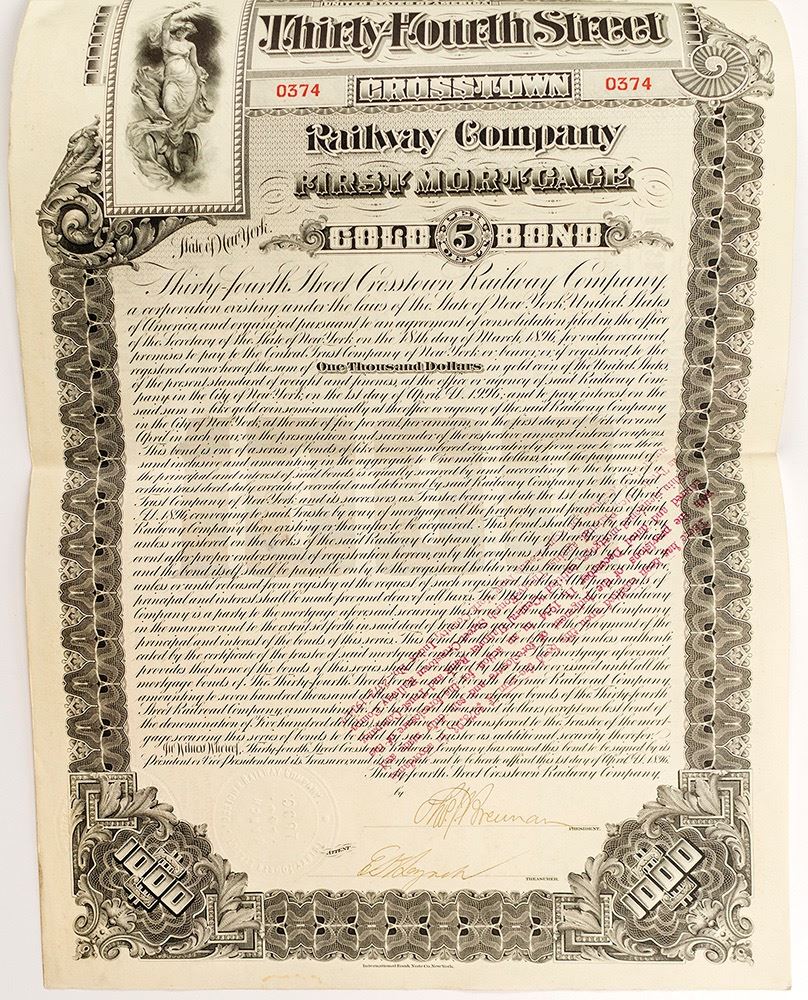 UNITED STATES OF AMERICA
Thirty-Fourth Street
0374 CROSSTOWN 0374
Railway Company
FIRST MORTGAGE
State of New York.
GOLD 5 BOND
Thirty-fourth Street Crosstown Railway Company
a corporation existing under the laws of the State of New York, United States
of America, and organized pursuant to an agreement of consolidation filed in the office
of the Secretary of the State of New York on the 18th day of March, 1896, for value received
promises to pay to the Central Trust Company of New York or bearer, or, if registered, to the
registered owner hereof, the sum of One Thousand Dollars, in gold coin of the United States,
of the present standard of weight and fineness, at the office or agency of said Railway Com-
pany, in the City of New York, on the 1st day of April, A.D. 1996, and to pay interest on the
said sum in like gold coin semi-annually at the office or agency of the said Railway Company
in the City of New York, at the rate of five per cent per annum, on the first days of October and
April in each year, on the presentation and surrender of the respective annexed interest coupons.
This bond is one of a series of bonds of like tenor numbered consecutively from one to one thou-
sand inclusive and amounting in the aggregate to One million dollars and the payment of
the principal and interest of said bonds is equally secured by and according to the terms of a
certain trust deed duly executed recorded and delivered by said Railway Company to the Central
Trust Company of New York and its successors as Trustee, bearing date the 1st day of April,
A.D. 1896, conveying to said Trustee by way of mortgage all the property and franchises of said
Railway Company then existing or thereafter to be acquired. This bond shall pass by delivery
unless registered on the books of the said Railway Company in the City of New York
ent after proper endorsement of registration hereon, only the coupons shall
and the bond itself shall be payable only to the registered holder
unless or until released from registry at the request of such registered holder
principal and interest shall be made free and clear of all taxes. The
Company is a party to the mortgage aforesaid securing the Company
in the manner and to the extent set forth in said deed of trust payment of the
principal and interest of the bonds of this series. This bond unless authenti-
cated by the certificate of the trustee of said mortgage mortgage aforesaid
provides that none of the bonds of this series shall be issued until all the
mortgage bonds of The Thirty-fourth Street Railroad Company,
amounting to seven hundred thousand bonds of the Thirty-fourth
Street Railroad Company, amounting dollars (except one lost bond of
the denomination of Five hundred dollars) transferred to the Trustee of the mort-
gage securing this series of bonds to be Trustee as additional security therefor.
In Witness Whereof, Thirty-fourth Street Crosstown Railway Company has caused this bond to be signed by its
President or Vice President and its Treasurer, and seal to be hereto affixed this 1st day of April, A.D. 1896.
Thirty-fourth Street Crosstown Railway Company,
by
PRESIDENT.
ATTEST
TREASURER.
1000 1000
International Bank Note Co. New York.